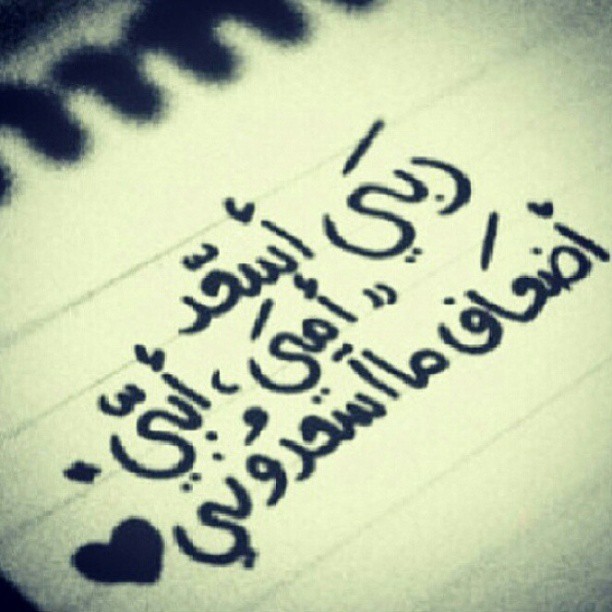 ربيَ أسعدّ
" أميَ ، أبيّ .
أضعاف ما اسعدوُني